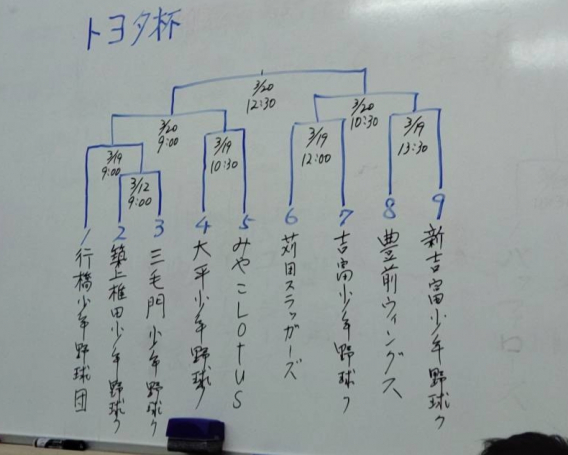 トヨタ杯
3/20
12:30
3/20
9:00
3/20
10:30
3/19
9:00
3/12
9:00
3/19
10:30
3/19
12:00
3/19
13:30
1 行橋少年野球団
2 築上椎田少年野球ク
3 三毛門少年野球ク
4 大平少年野球ク
5 みやこLotus
6 苅田スラッガーズ
7 吉富少年野球ク
8 豊前ウィングス
9 新吉富少年野球ク